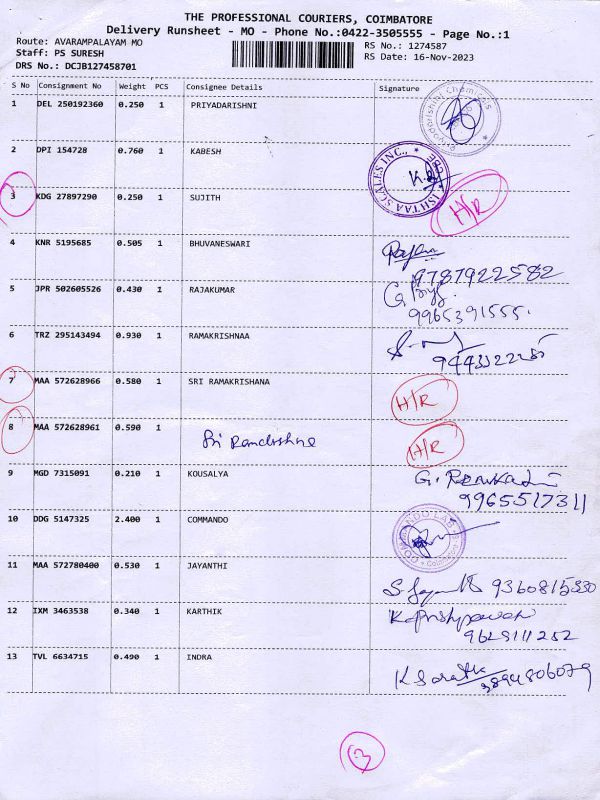 THE PROFESSIONAL COURIERS, COIMBATORE
Delivery Runsheet - MO - Phone No.:0422-3505555 - Page No.:1
Route: AVARAMPALAYAM MO
RS No.: 1274587
Staff: PS SURESH
RS Date: 16-Nov-2023
DRS No.: DCJB127458701
S No Consignment No Weight PCS Consignee Details Signature
1 DEL 250192360 0.250 1 PRIYADARISHNI
Priyadarishni Chemicals
2 DPI 154728 0.760 1 KABESH
ISHTAA SCALES INC., CBE
3 KDG 27897290 0.250 1 SUJITH H/R
4 KNR 5195685 0.505 1 BHUVANESWARI
9787922582
5 JPR 502605526 0.430 1 RAJAKUMAR
9965391555.
6 TRZ 295143494 0.930 1 RAMAKRISHNAA
7 MAA 572628966 0.580 1 SRI RAMAKRISHANA H/R
8 MAA 572628961 0.590 1 H/R
9 MGD 7315091 0.210 1 KOUSALYA
9965517311
10 DDG 5147325 2.400 1 COMMANDO
11 MAA 572780400 0.530 1 JAYANTHI
9360815330
12 IXM 3463538 0.340 1 KARTHIK
9629111252
13 TVL 6634715 0.490 1 INDRA
3